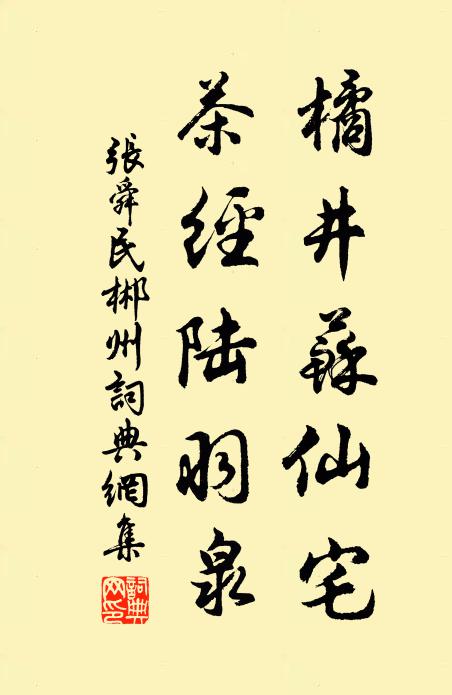 橘井蘇仙宅
茶經陆羽泉
張舜民郴州詞典網集
詞典网印